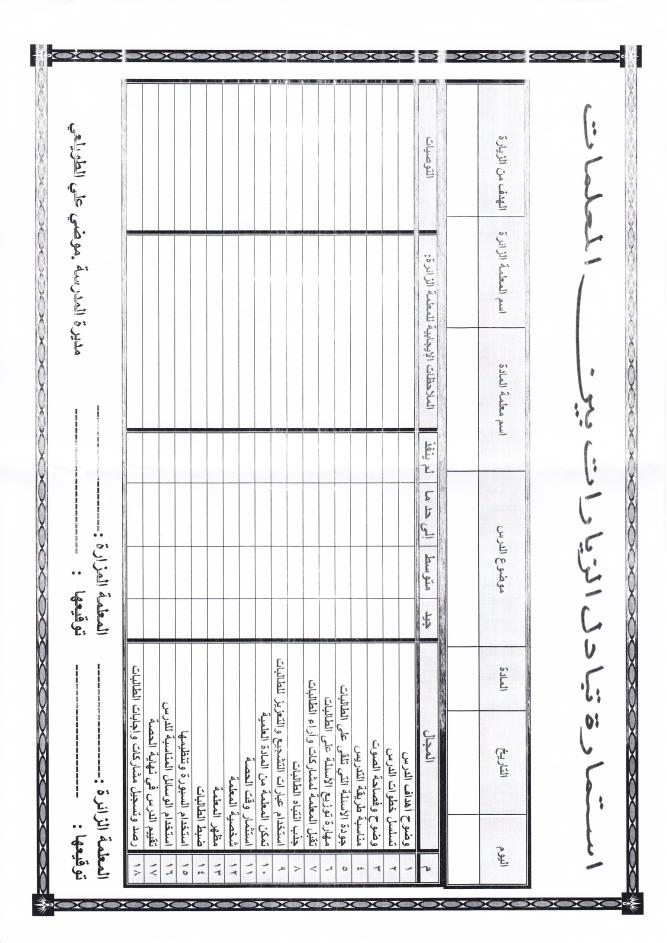 استمارة تبادل الزيارات بين المعلمات
اليوم التاريخ المادة موضوع الدرس اسم معلمة المادة اسم المعلمة الزائرة الهدف من الزيارة
م المجال جيد متوسط إلى حد ما لم ينفذ الملاحظات الإيجابية للمعلمة الزائرة: التوصيات
١ وضوح أهداف الدرس
٢ تسلسل خطوات الدرس
٣ وضوح وفصاحة الصوت
٤ مناسبة طريقة التدريس
٥ جودة الأسئلة التي تلقى على الطالبات
٦ مهارة توزيع الأسئلة على الطالبات
٧ تقبل المعلمة لمشاركات وآراء الطالبات
٨ جذب انتباه الطالبات
٩ استخدام عبارات التشجيع والتعزيز للطالبات
١٠ تمكن المعلمة من المادة العلمية
١١ استثمار وقت الحصة
١٢ شخصية المعلمة
١٣ مظهر المعلمة
١٤ ضبط الطالبات
١٥ استخدام السبورة وتنظيمها
١٦ استخدام الوسائل المناسبة للدرس
١٧ تقييم الدرس في نهاية الحصة
١٨ رصد وتسجيل مشاركات واجابات الطالبات
المعلمة الزائرة : -------------------- المعلمة المزارة : --------------------
توقيعها : -------------------- توقيعها : -------------------- مديرة المدرسة .موضي علي الطريلعي